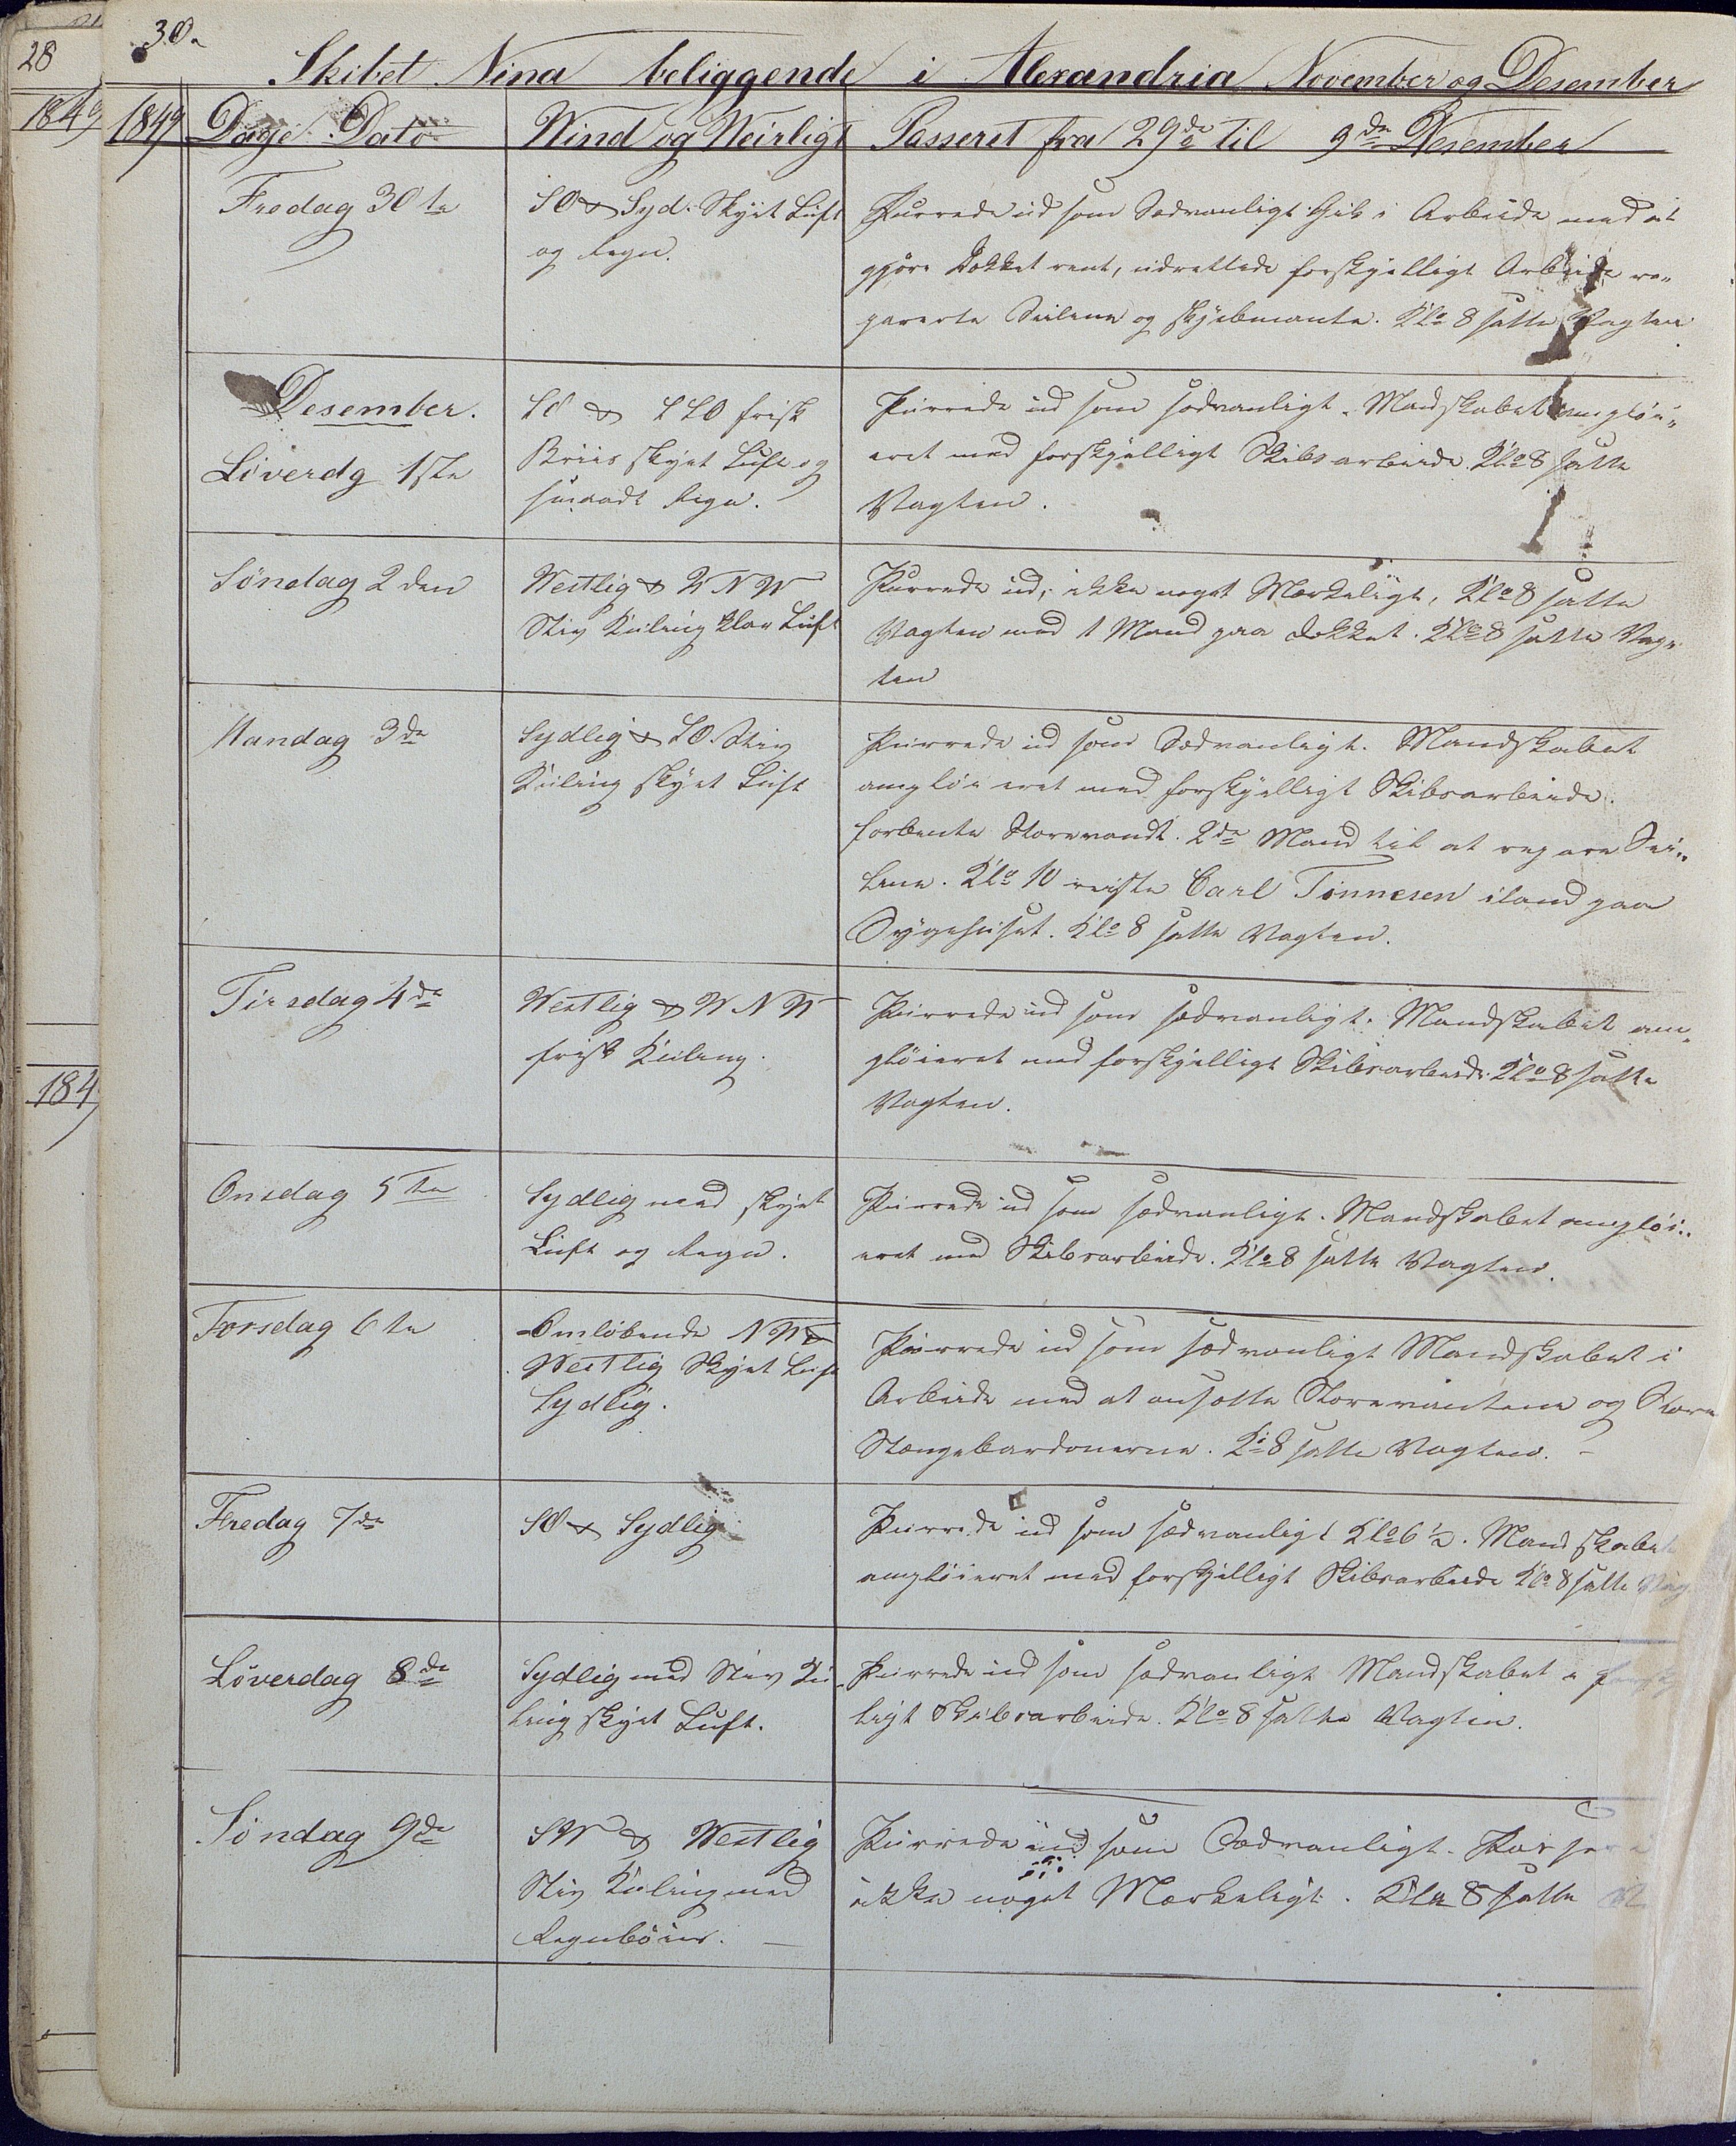 28
1849
184
30.
Skibet Nina beliggende i Alexandria November og Desember
1849 Dage Dato Wind og Weirligt Passeret fra 29de til 9de Desember
Fredag 30te
SO & Syd. Skyet Luft
og Regn.
Purrede ud som Sædvanligt Gik i Arbeide med at
gjøre Dækket rent, udrettede forskjelligt Arbeide re„
parerte Seilene og skjebmante. Klo 8 satte Vagten
Desember.
Löverdg 1ste
SO & SSO frisk
Briis skyet Luft og
smaadt Regn.
Purrede ud som sædvanligt. Mandskabet empløi„
eret med forskjelligt Skibsarbeide. Klo 8 satte
Vagten.
Söndag 2den
Westlig & WNW
Stiv Kuling klar Luft
Purrede ud, ikke noget Mærkeligt, Klo 8 satte
Vagten med 1 Mand paa Dækket. Klo 8 satte Vag„
ten
Mandag 3de
Sydlig & SO. Stiv
Kuling skyet Luft
Purrede ud som Sædvanligt. Mandskabet
empløieret med forskjelligt Skibsarbeide.
forbente Storevandt. 2de Mand til at repare Sei„
lene. Klo 10 reiste Carl Tönnesen iland paa
Sygehuset. Klo 8 satte Vagten.
Tirsdag 4de
Westlig & WNW
frisk Kuling.
Purrede ud som sædvanligt. Mandskabet em„
pløieret med forskjelligt Skibsarbeide. Klo 8 satte
Vagten.
Onsdag 5te
Sydlig med skyet
Luft og Regn.
Purrede ud som sædvanligt. Mandskabet empløi„
eret med Skibsarbeide. Klo 8 satte Vagten.
Torsdag 6te
Omløbende NW &
Westlig Skyet Luft
Sydlig.
Purrede ud som sædvanligt Mandskabet i
Arbeide med at ansætte Storevantene og Store
Stængebardonerne. Kl 8 satte Vagten.
Fredag 7de
SO & Sydlig
Purrede ud som sædvanligt Klo 6 1/2. Mandskabet
empløieret med forskjelligt Skibsarbeide Klo 8 satte Vag
Löverdag 8de
Sydlig med Stiv Ku„
ling skyet Luft.
Purrede ud som sædvanligt Mandskabet
ligt Skibsarbeide. Klo 8 satte Vagten.
Söndag 9de
SW & Westlig
Stiv Kuling med
Regnböier.
Purrede ud som Sædvanligt.
ikke noget Mærkeligt. Klo 8 satte